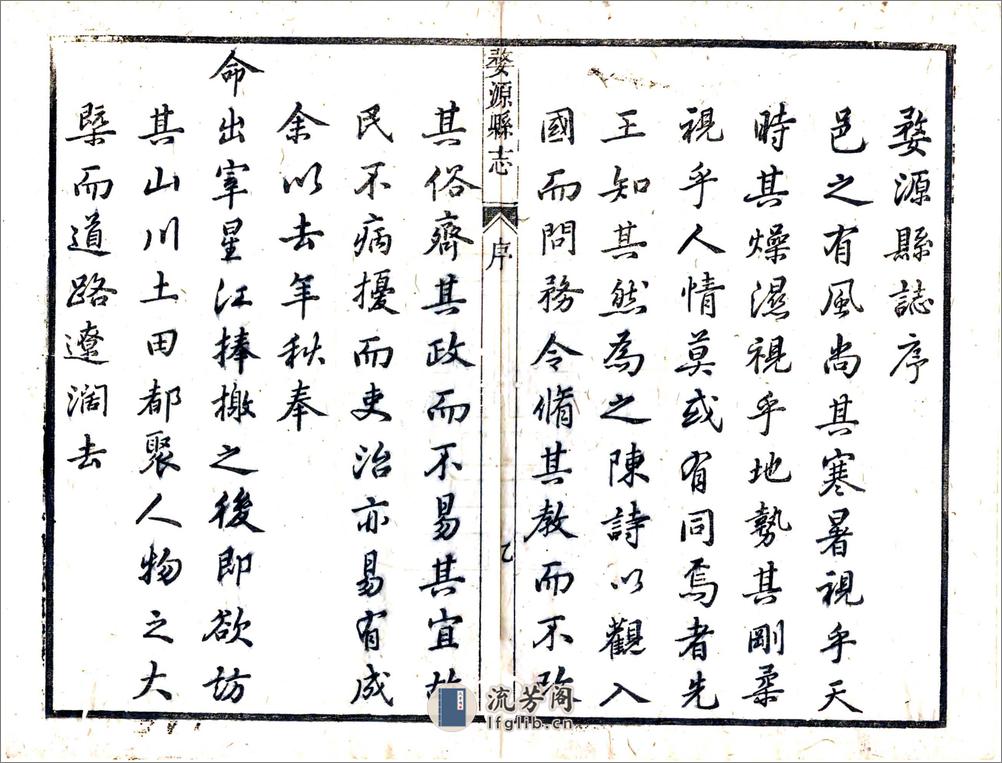 婺源縣誌序
邑之有風尚其寒暑視乎天
時其燥濕視乎地勢其剛柔
視乎人情莫或有同焉者先
王知其然為之陳詩以觀入
國而問務令脩其教而不
婺源縣志 序
其俗齊其政而不易其宜故
民不病擾而吏治亦易有成
余以去年秋奉
命出宰星江捧檄之後即欲訪
其山川土田都聚人物之大
槩而道路遼濶去
流芳阁
lfglib.cn